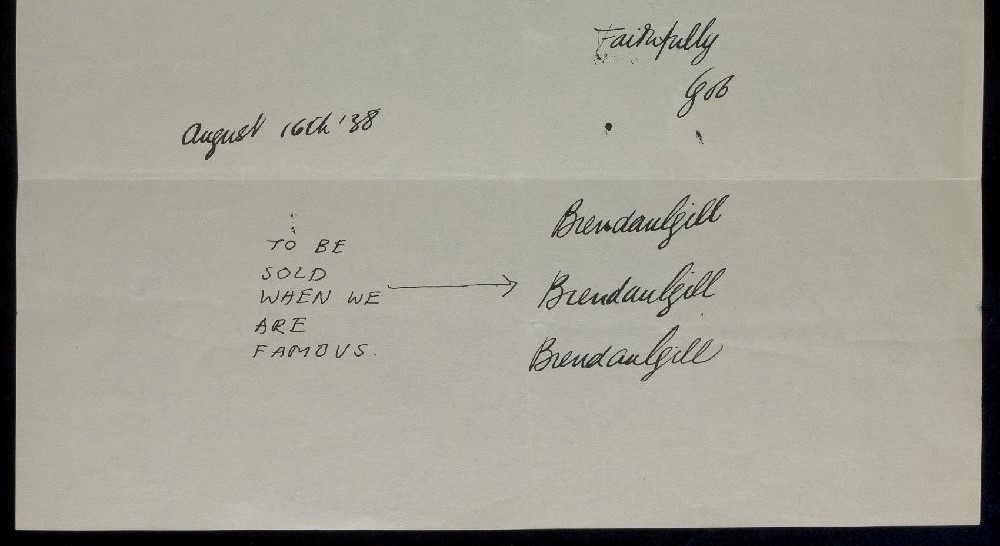 Faithfully
Gob
August 16th '38
TO BE
SOLD
WHEN WE
ARE
FAMOUS.
Brendan Gill
Brendan Gill
Brendan Gill